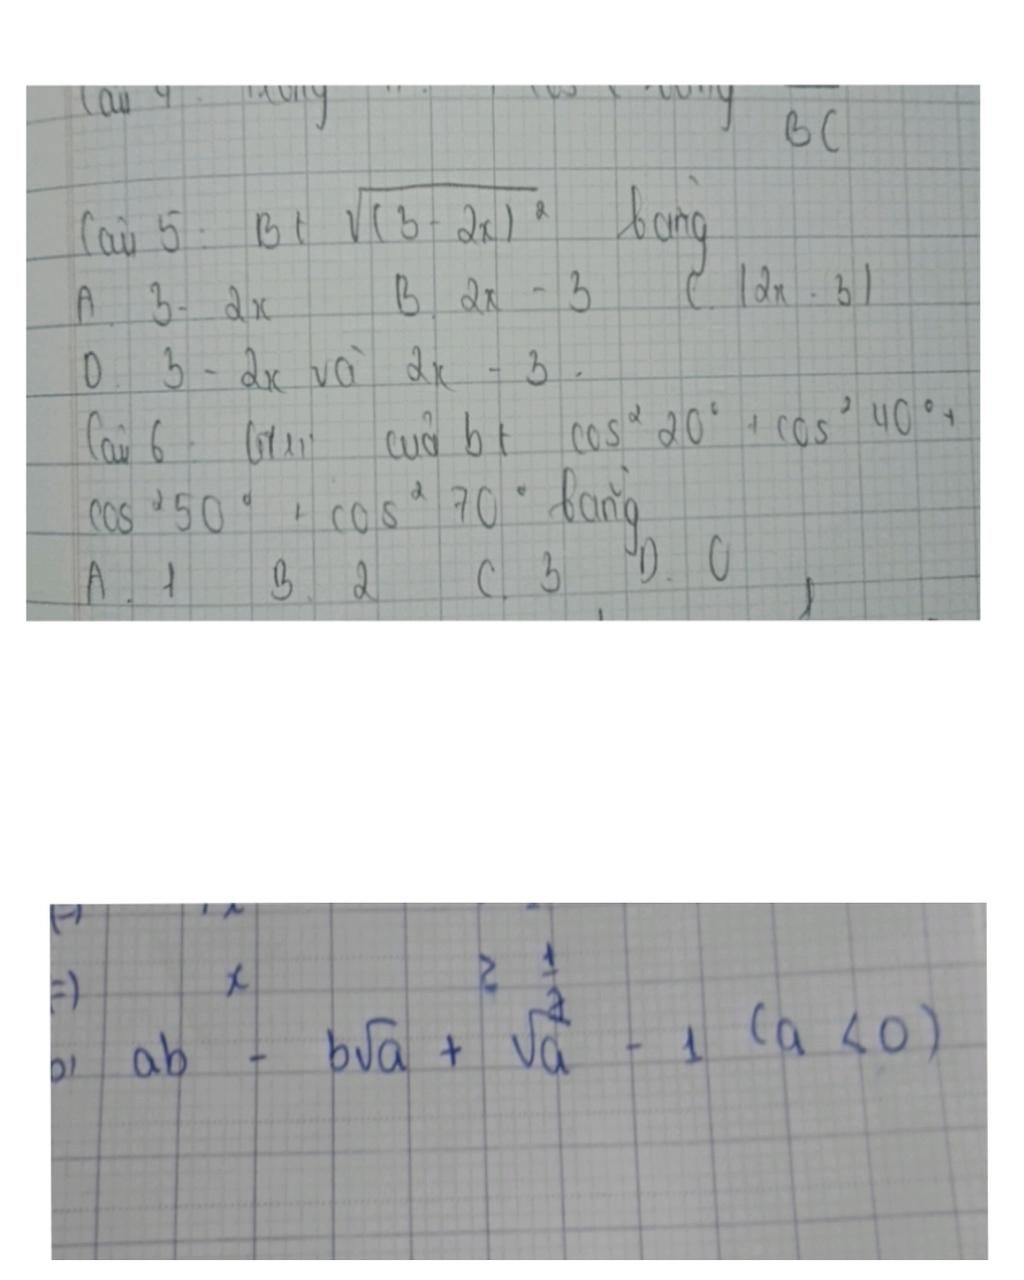 Câu 4.
BC
Câu 5: Bt √(3 - 2x)² bằng
A. 3 - 2x B. 2x - 3 C. |2x - 3|
D. 3 - 2x và 2x - 3.
Câu 6 của bt cos² 20° + cos² 40° +
cos² 50° + cos² 70° bằng
A. 1 B. 2 C. 3 D. 0
=) x ≥ 1/2
b) ab - b√a + √a - 1 (a < 0)